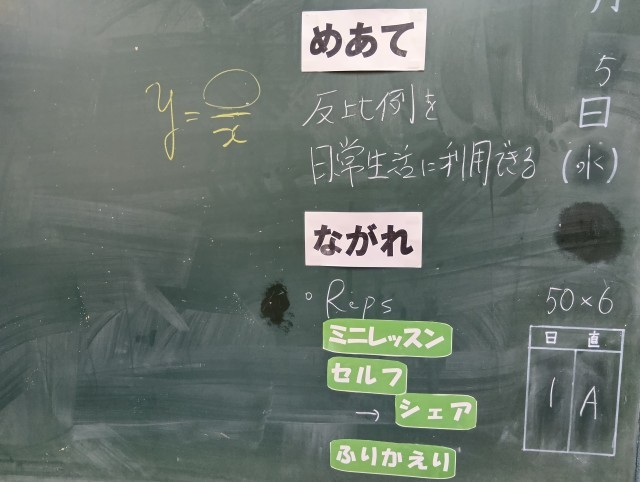 めあて
y = ○/x
反比例を
日常生活に利用できる
ながれ
○Reps
ミニレッスン
セルフ
→ シェア
ふりかえり
月
5
日
(水)
50×6
日直
1 A